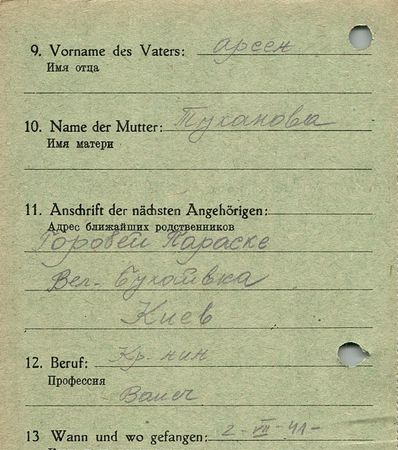 9. Vorname des Vaters: Арсен
Имя отца
10. Name der Mutter: Туханова
Имя матери
11. Anschrift der nächsten Angehörigen:
Адрес ближайших родственников
Горовей Параске
Вел-Бугаївка
Киев
12. Beruf: Кр-нин
Профессия
Bauer
13 Wann und wo gefangen: 2-VII-41-